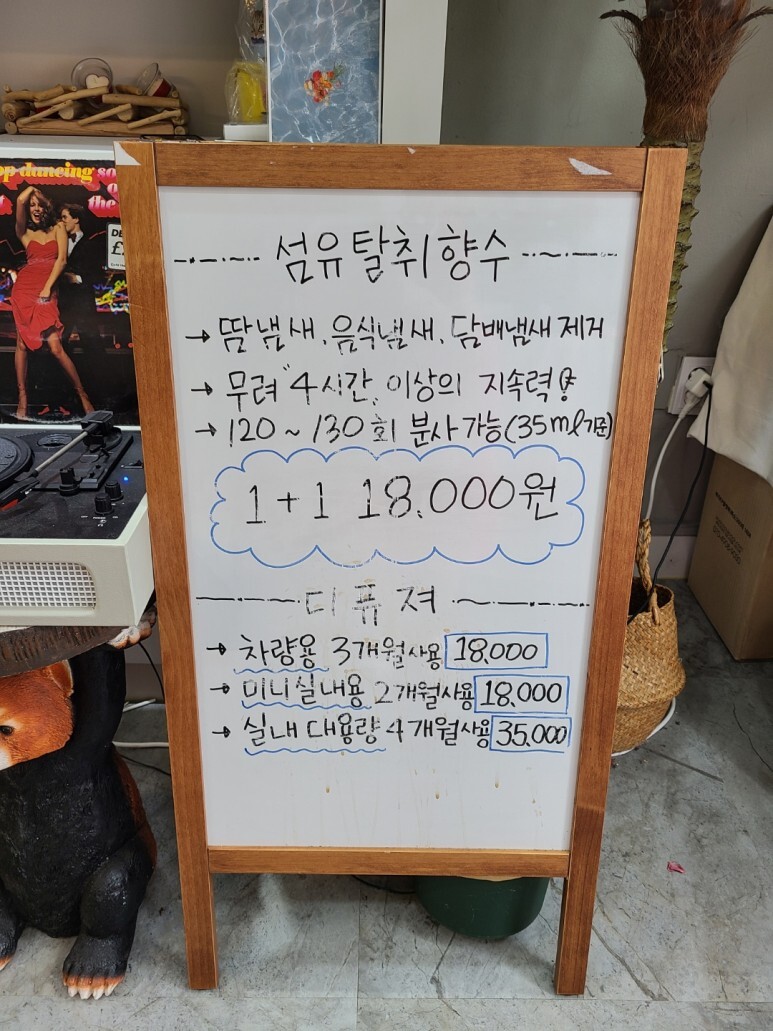 op dancing so
섬유탈취향수
→ 땀냄새, 음식냄새, 담배냄새 제거
→ 무려 "4시간" 이상의 지속력
→ 120 ~ 130회 분사가능(35ml기준)
1+1 18.000원
디퓨져
→ 차량용 3개월사용 18.000
→ 미니실내용 2개월사용 18.000
→ 실내 대용량 4개월사용 35.000